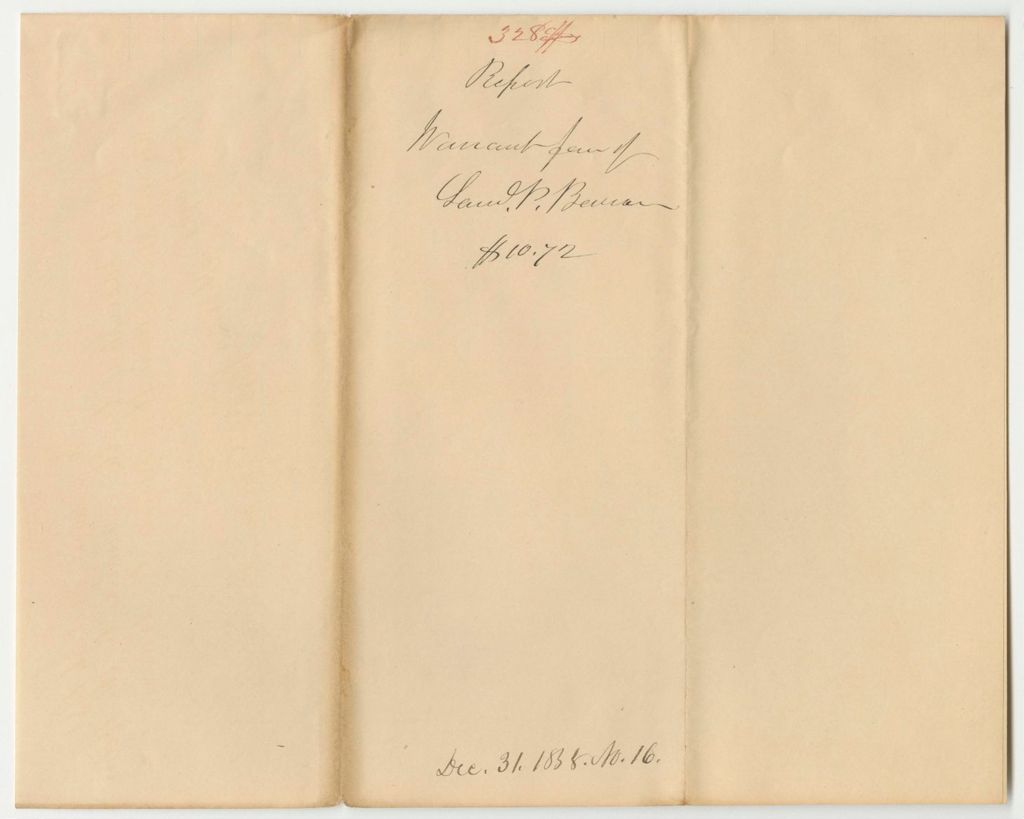 328
Report
Warrant fav of
Saml. P. Benson
$10.72
Dec. 31. 1838. No. 16.